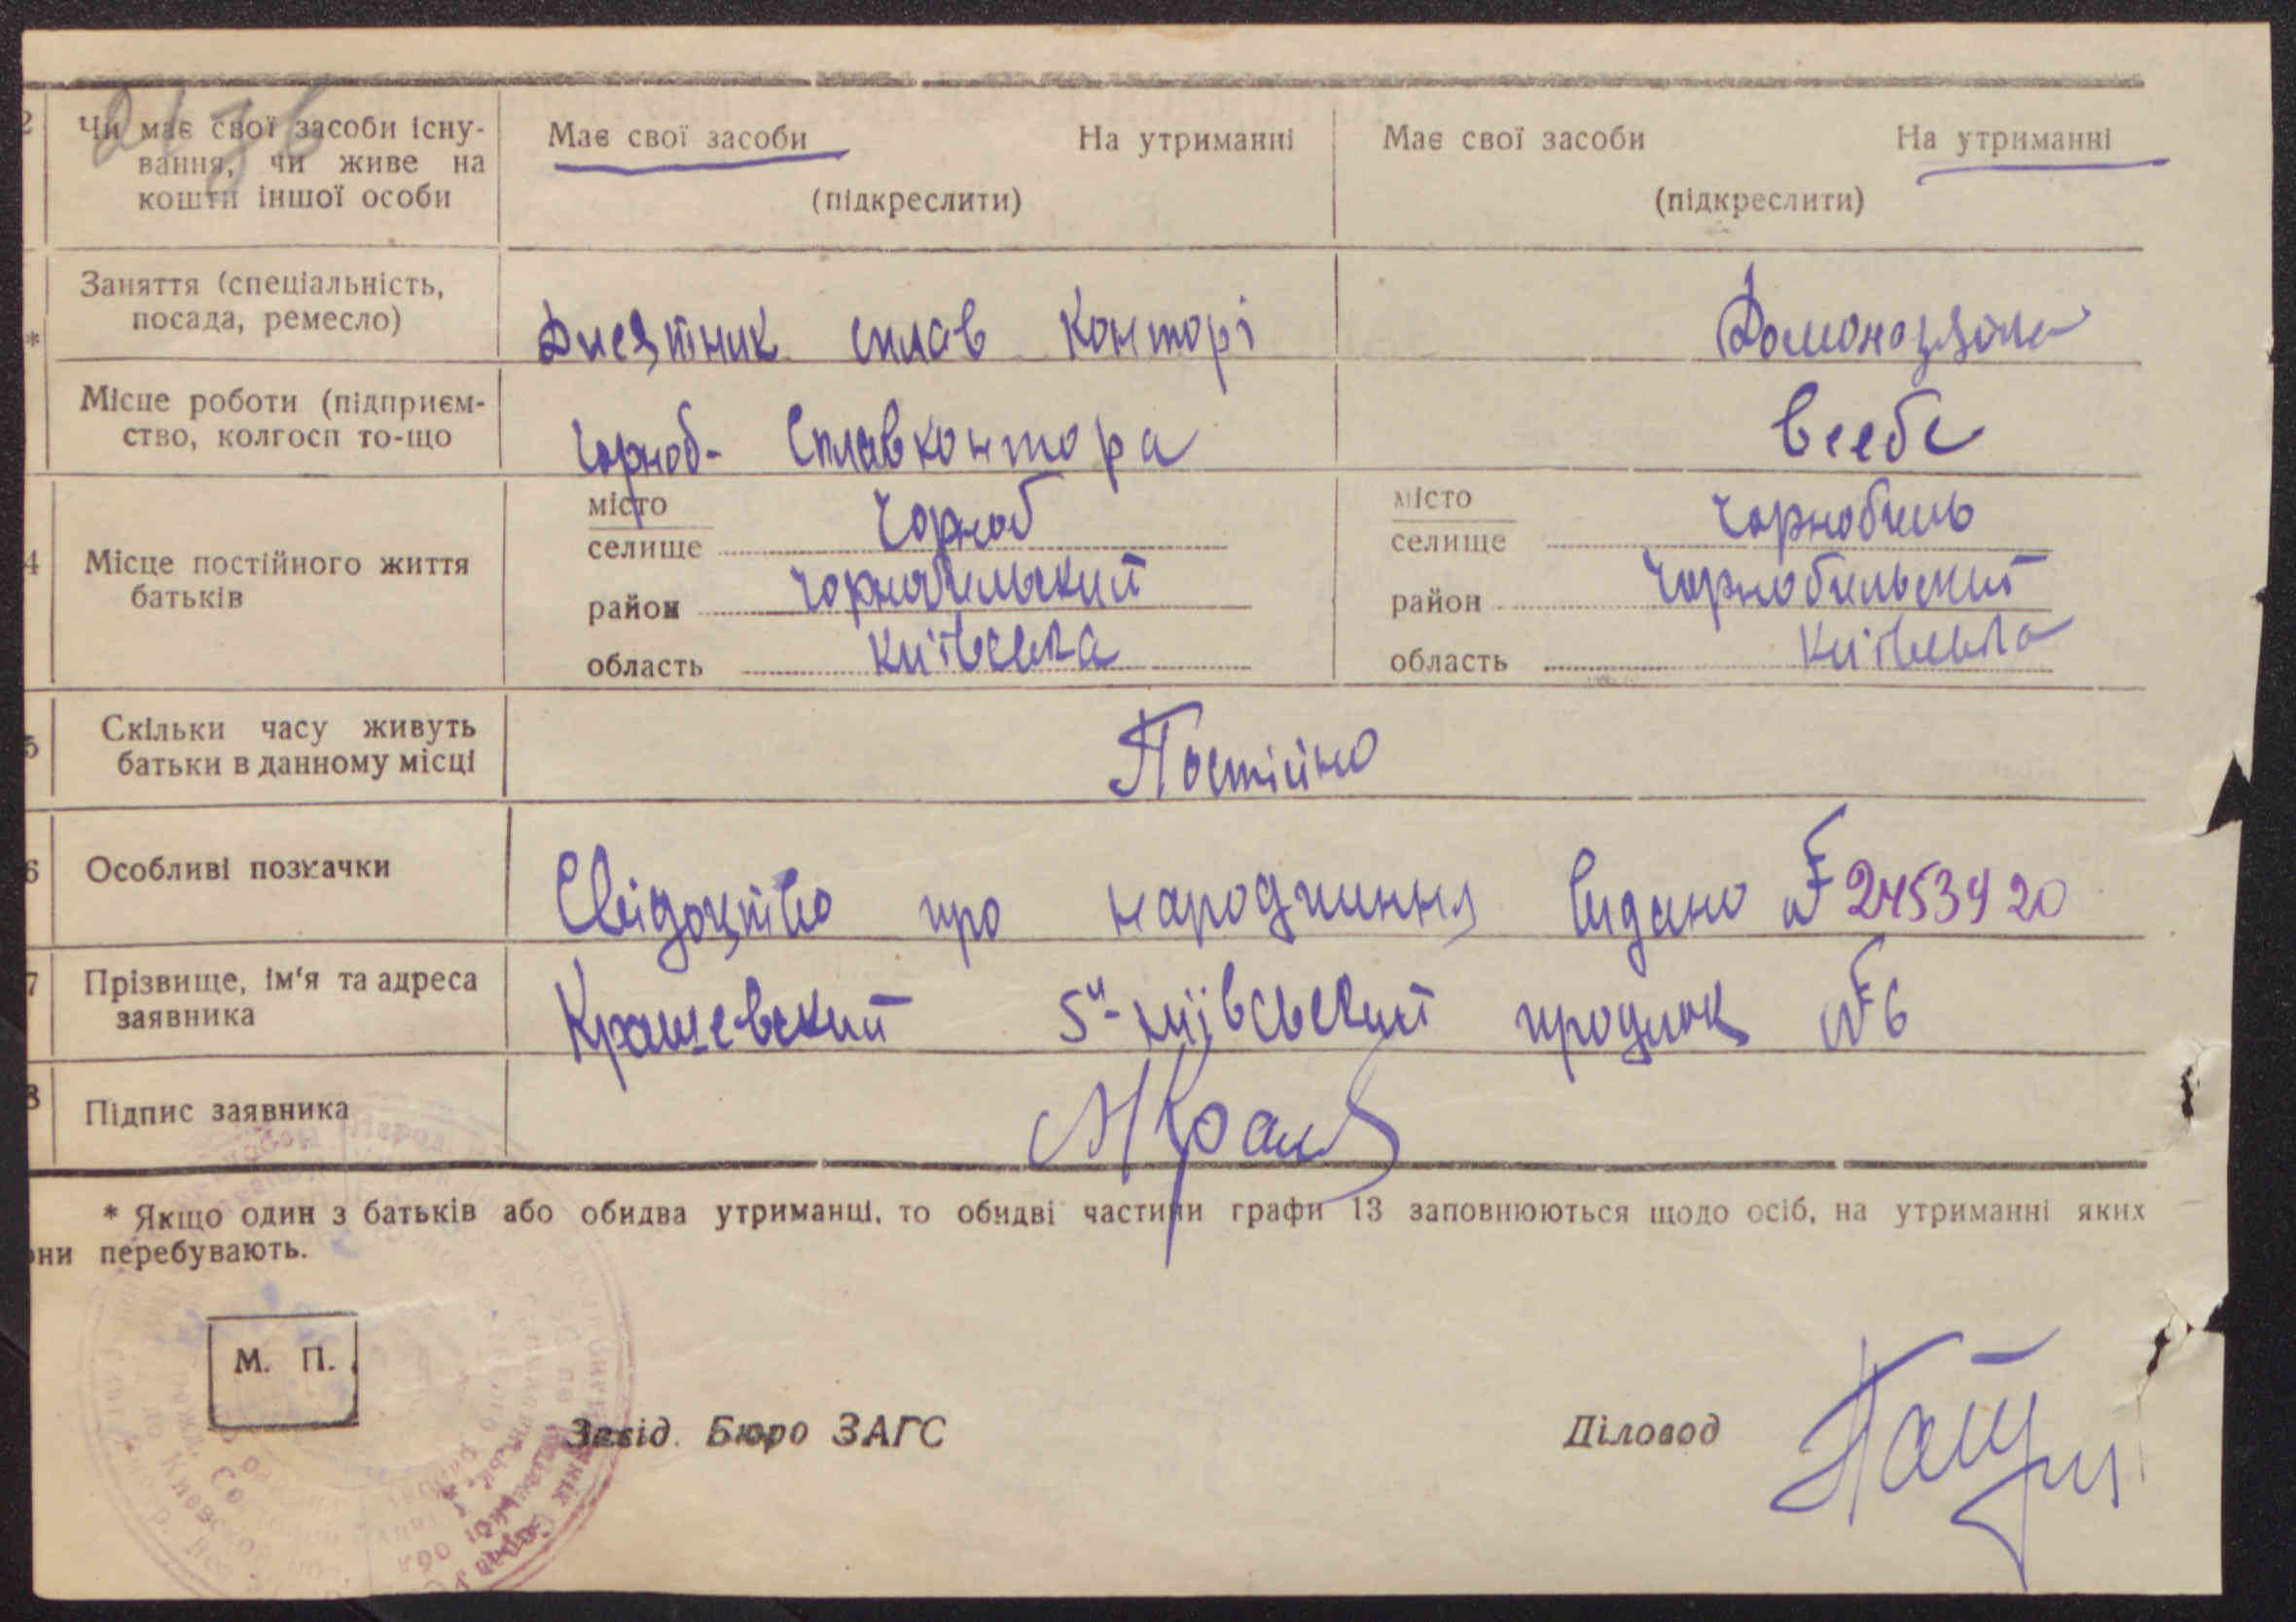 2176
2 Чи має свої засоби існу- Має свої засоби На утриманні Має свої засоби На утриманні
вання, чи живе на
кошти іншої особи (підкреслити) (підкреслити)
Заняття (спеціальність,
* посада, ремесло) Дисятник сплав Конторі Домохозяйка
Місце роботи (підприєм-
ство, колгосп то-що Чорноб- Сплавконтора
місто Чорноб місто Чорнобиль
селище селище
4 Місце постійного життя
батьків район Чорнобильский район Чорнобильский
область Київська область Київська
5 Скільки часу живуть
батьки в данному місці Постійно
6 Особливі позначки Свідоцтво про народження видано № 2453920
7 Прізвище, ім'я та адреса
заявника Крашевский 5й-Київсьский №6
8 Підпис заявника
* Якщо один з батьків або обидва утриманці, то обидві частини графи 13 заповнюються щодо осіб, на утриманні яких
они перебувають.
М. П.
Завід. Бюро ЗАГС Діловод